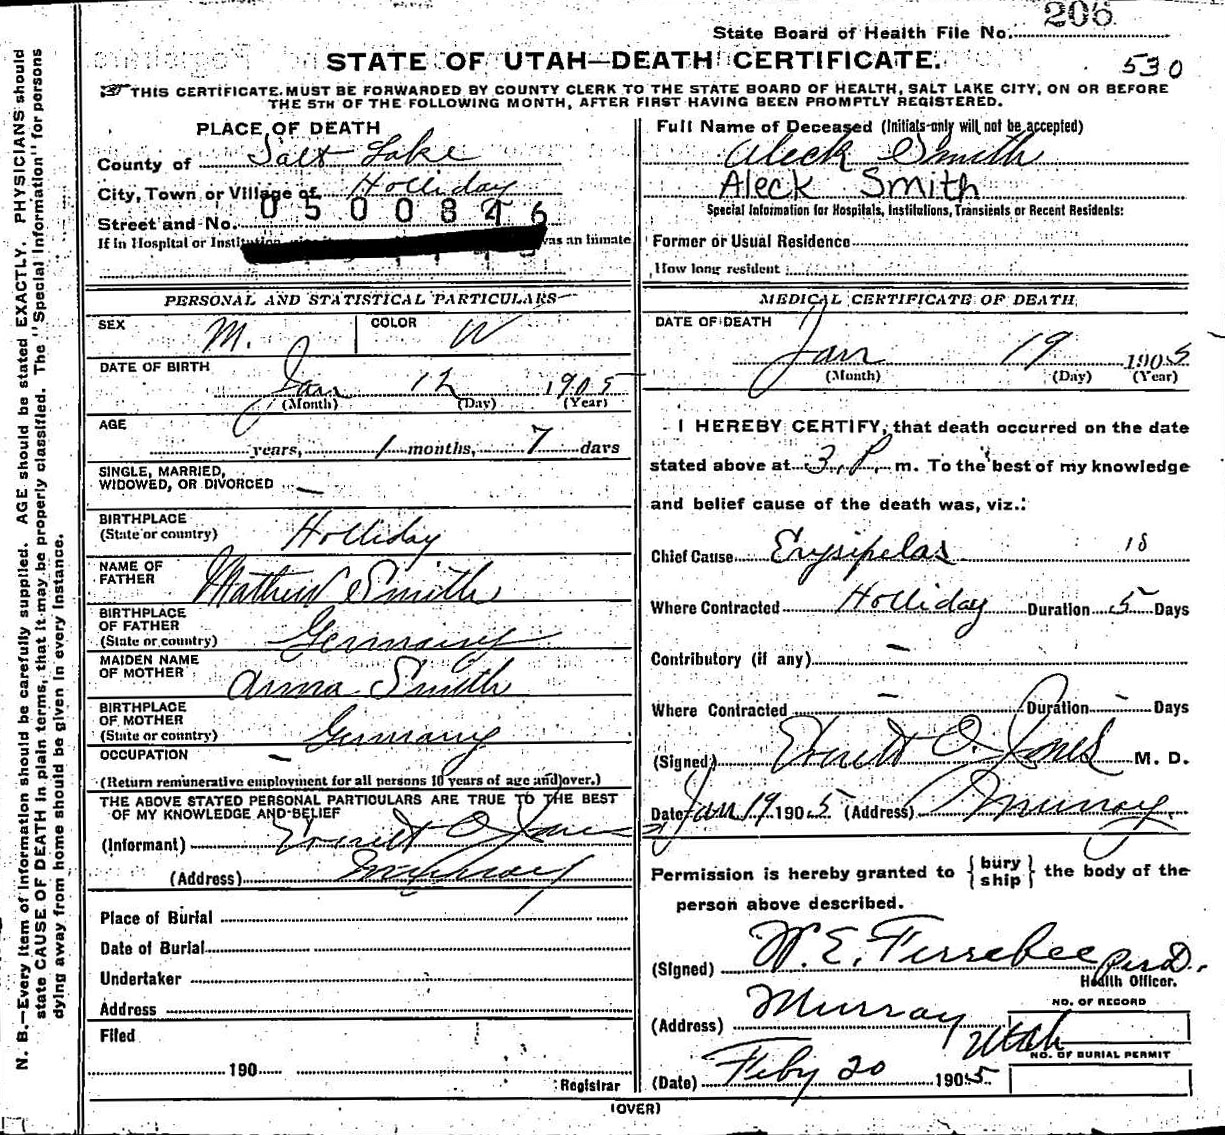 206
State Board of Health File No.
STATE OF UTAH—DEATH CERTIFICATE.
530
THIS CERTIFICATE MUST BE FORWARDED BY COUNTY CLERK TO THE STATE BOARD OF HEALTH, SALT LAKE CITY, ON OR BEFORE
THE 5TH OF THE FOLLOWING MONTH, AFTER FIRST HAVING BEEN PROMPTLY REGISTERED.
N. B.—Every item of information should be carefully supplied. AGE should be stated EXACTLY. PHYSICIANS should
state CAUSE OF DEATH in plain terms, that it may be properly classified. The "Special Information" for persons
dying away from home should be given in every instance.
PLACE OF DEATH
County of Salt Lake
City, Town or Village of Holliday
Street and No. 0500846
If in Hospital or Institution was an inmate
PERSONAL AND STATISTICAL PARTICULARS
SEX M. COLOR W
DATE OF BIRTH
Jan 12 1905
(Month) (Day) (Year)
AGE
years, 1 months, 7 days
SINGLE, MARRIED,
WIDOWED, OR DIVORCED —
BIRTHPLACE
(State or country) Holliday
NAME OF
FATHER Mathew Smith
BIRTHPLACE
OF FATHER
(State or country) Germany
MAIDEN NAME
OF MOTHER Anna Smith
BIRTHPLACE
OF MOTHER
(State or country) Germany
OCCUPATION —
(Return remunerative employment for all persons 10 years of age and over.)
THE ABOVE STATED PERSONAL PARTICULARS ARE TRUE TO THE BEST
OF MY KNOWLEDGE AND BELIEF
(Informant) Everett O. Jones
(Address) Murray
Place of Burial
Date of Burial
Undertaker
Address
Filed
190
Registrar
Full Name of Deceased (Initials only will not be accepted)
Aleck Smith
Aleck Smith
Special Information for Hospitals, Institutions, Transients or Recent Residents:
Former or Usual Residence
How long resident
MEDICAL CERTIFICATE OF DEATH
DATE OF DEATH
Jan 19 1905
(Month) (Day) (Year)
I HEREBY CERTIFY, that death occurred on the date
stated above at 3 P. m. To the best of my knowledge
and belief cause of the death was, viz.:
Chief Cause Erysipelas 18
Where Contracted Holliday Duration 5 Days
Contributory (if any) —
Where Contracted — Duration — Days
(Signed) Everett O. Jones M. D.
Date Jan 19 1905 (Address) Murray
Permission is hereby granted to {bury
ship} the body of the
person above described.
(Signed) W. E. Ferrebee
Health Officer.
NO. OF RECORD
(Address) Murray Utah
NO. OF BURIAL PERMIT
(Date) Feby 20 1905
(OVER)